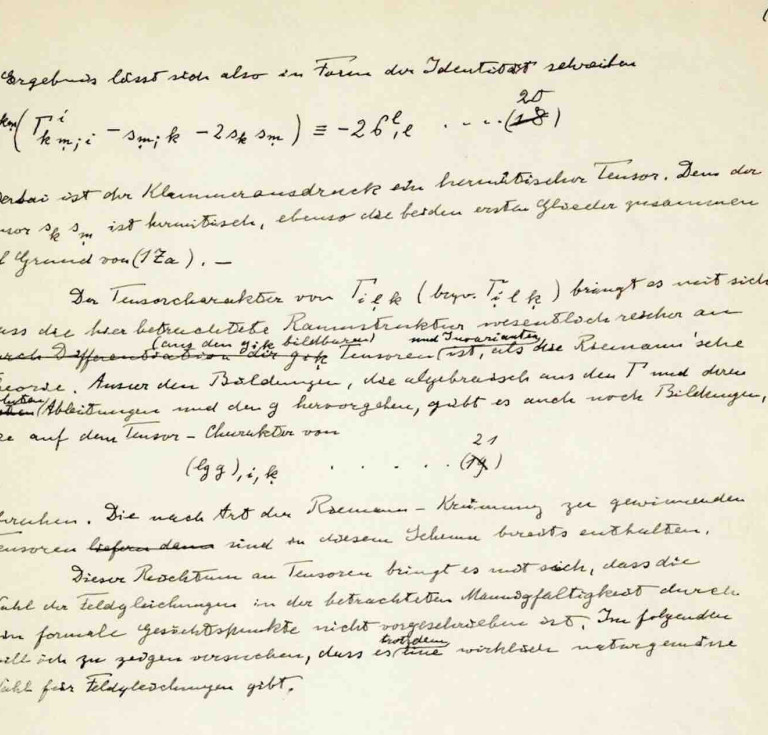 Ergebnis lässt sich also in Form der Identität schreiben
20
km( Γ^i_{k m; i} - s_{m; k} - 2 s_k s_m ) ≡ -2 б^l_{, l} . - . . (18)
ist der Klammerausdruck ein hermitischer Tensor. Denn der
s_k s_m ist hermitisch, ebenso die beiden ersten Glieder zusammen
Grund von (17a). —
Der Tensorcharakter von Γ_{i l k} (bezw. Γ_{i l k}) bringt es mit sich
dass die hier betrachtete Raumstruktur wesentlich reicher an
(aus den g_{ik} bildbaren) und Invarianten
durch Differentiation der g_{ik} Tensoren ist, als die Riemann'sche
Theorie. Ausser den Bildungen, die algebraisch aus den Γ und deren
Ableitungen und den g hervorgehen, gibt es auch noch Bildungen,
auf dem Tensor-Charakter von
21
(lg g)_{, i, k} . . . . . (19)
beruhen. Die nach Art der Riemann-Krümmung zu gewinnenden
Tensoren liefern dann sind in diesem Schema bereits enthalten.
Dieser Reichtum an Tensoren bringt es mit sich, dass die
Wahl der Feldgleichungen in der betrachteten Mannigfaltigkeit durch
formale Gesichtspunkte nicht vorgeschrieben ist. Im folgenden
trotzdem
will ich zu zeigen versuchen, dass es eine wirklich naturgemässe
Wahl für Feldgleichungen gibt.